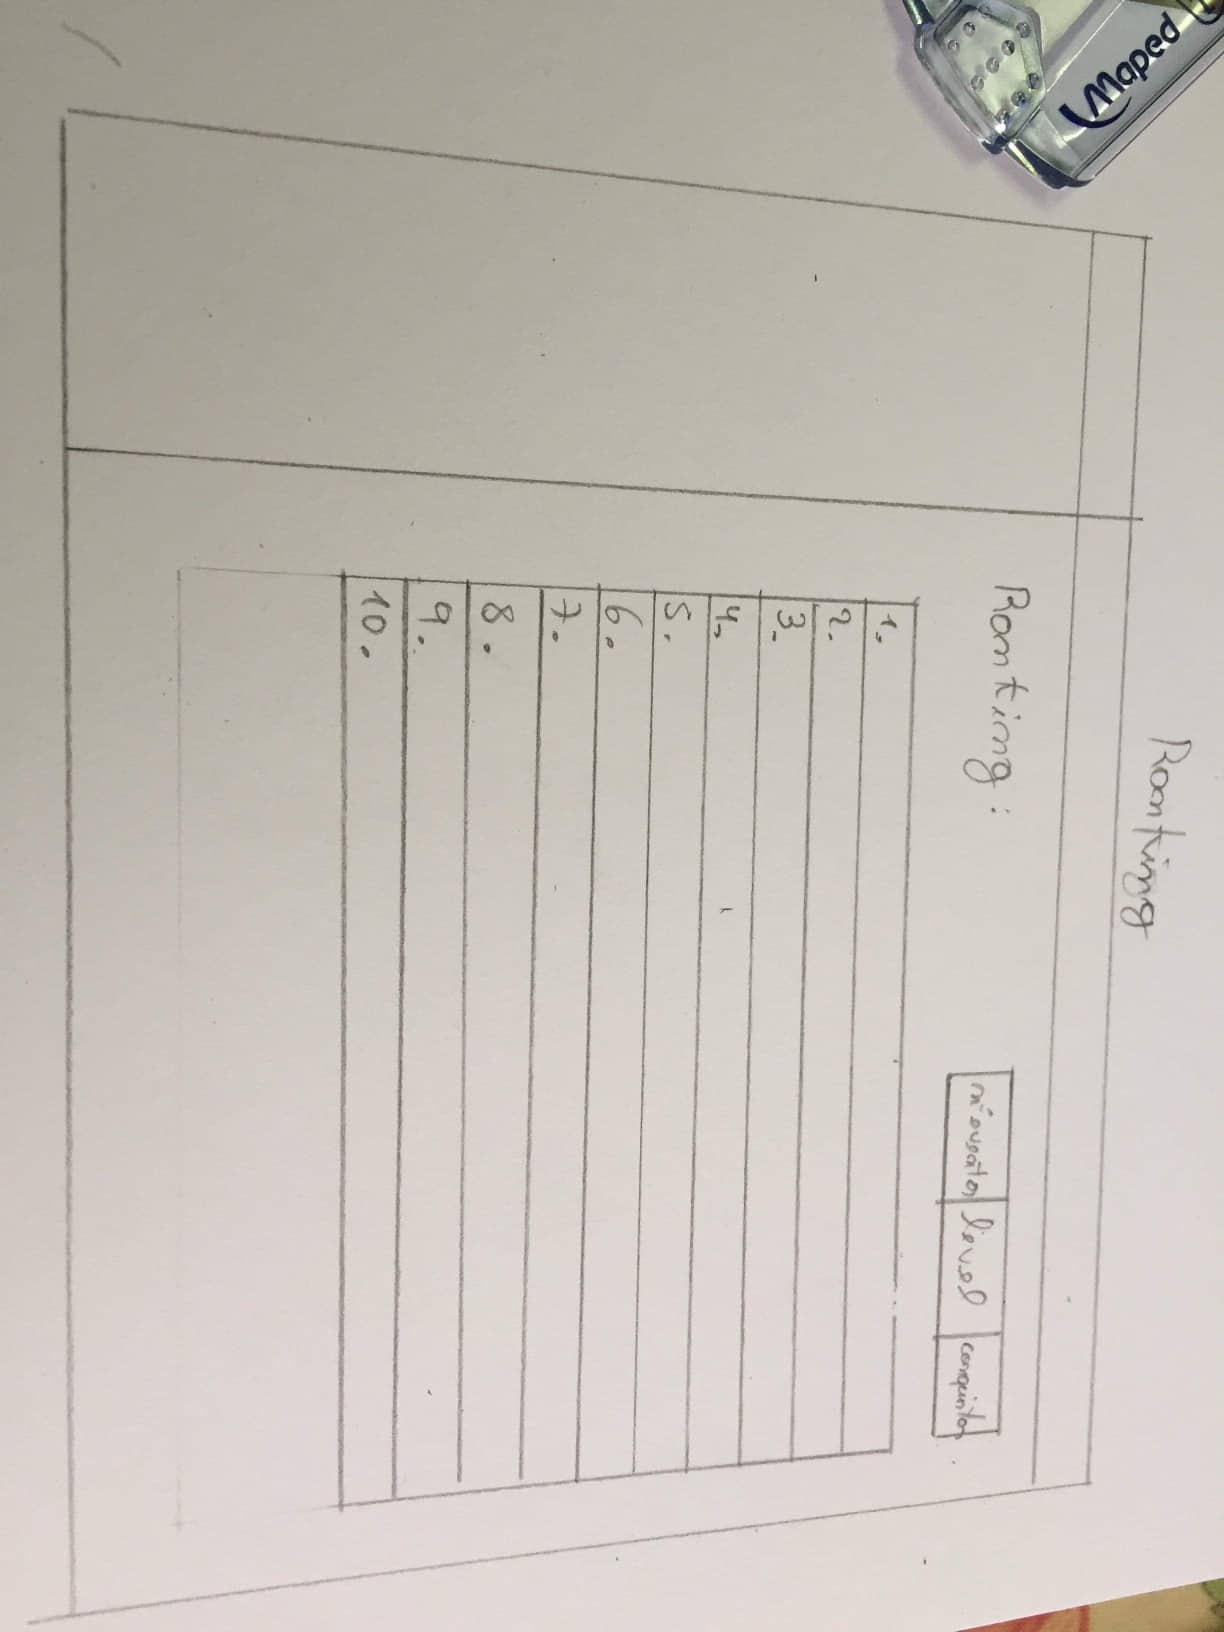 Maped
Ranking
Ranking:
nº eventos level conquistas
1.
2.
3.
4.
5.
6.
7.
8.
9.
10.